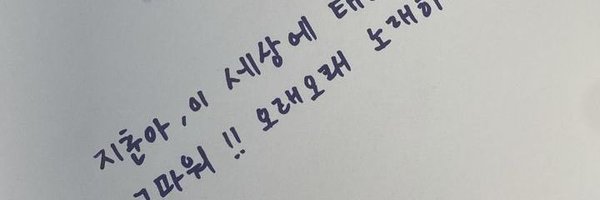 지훈아, 이 세상에 태
고마워!! 오래오래 노래하